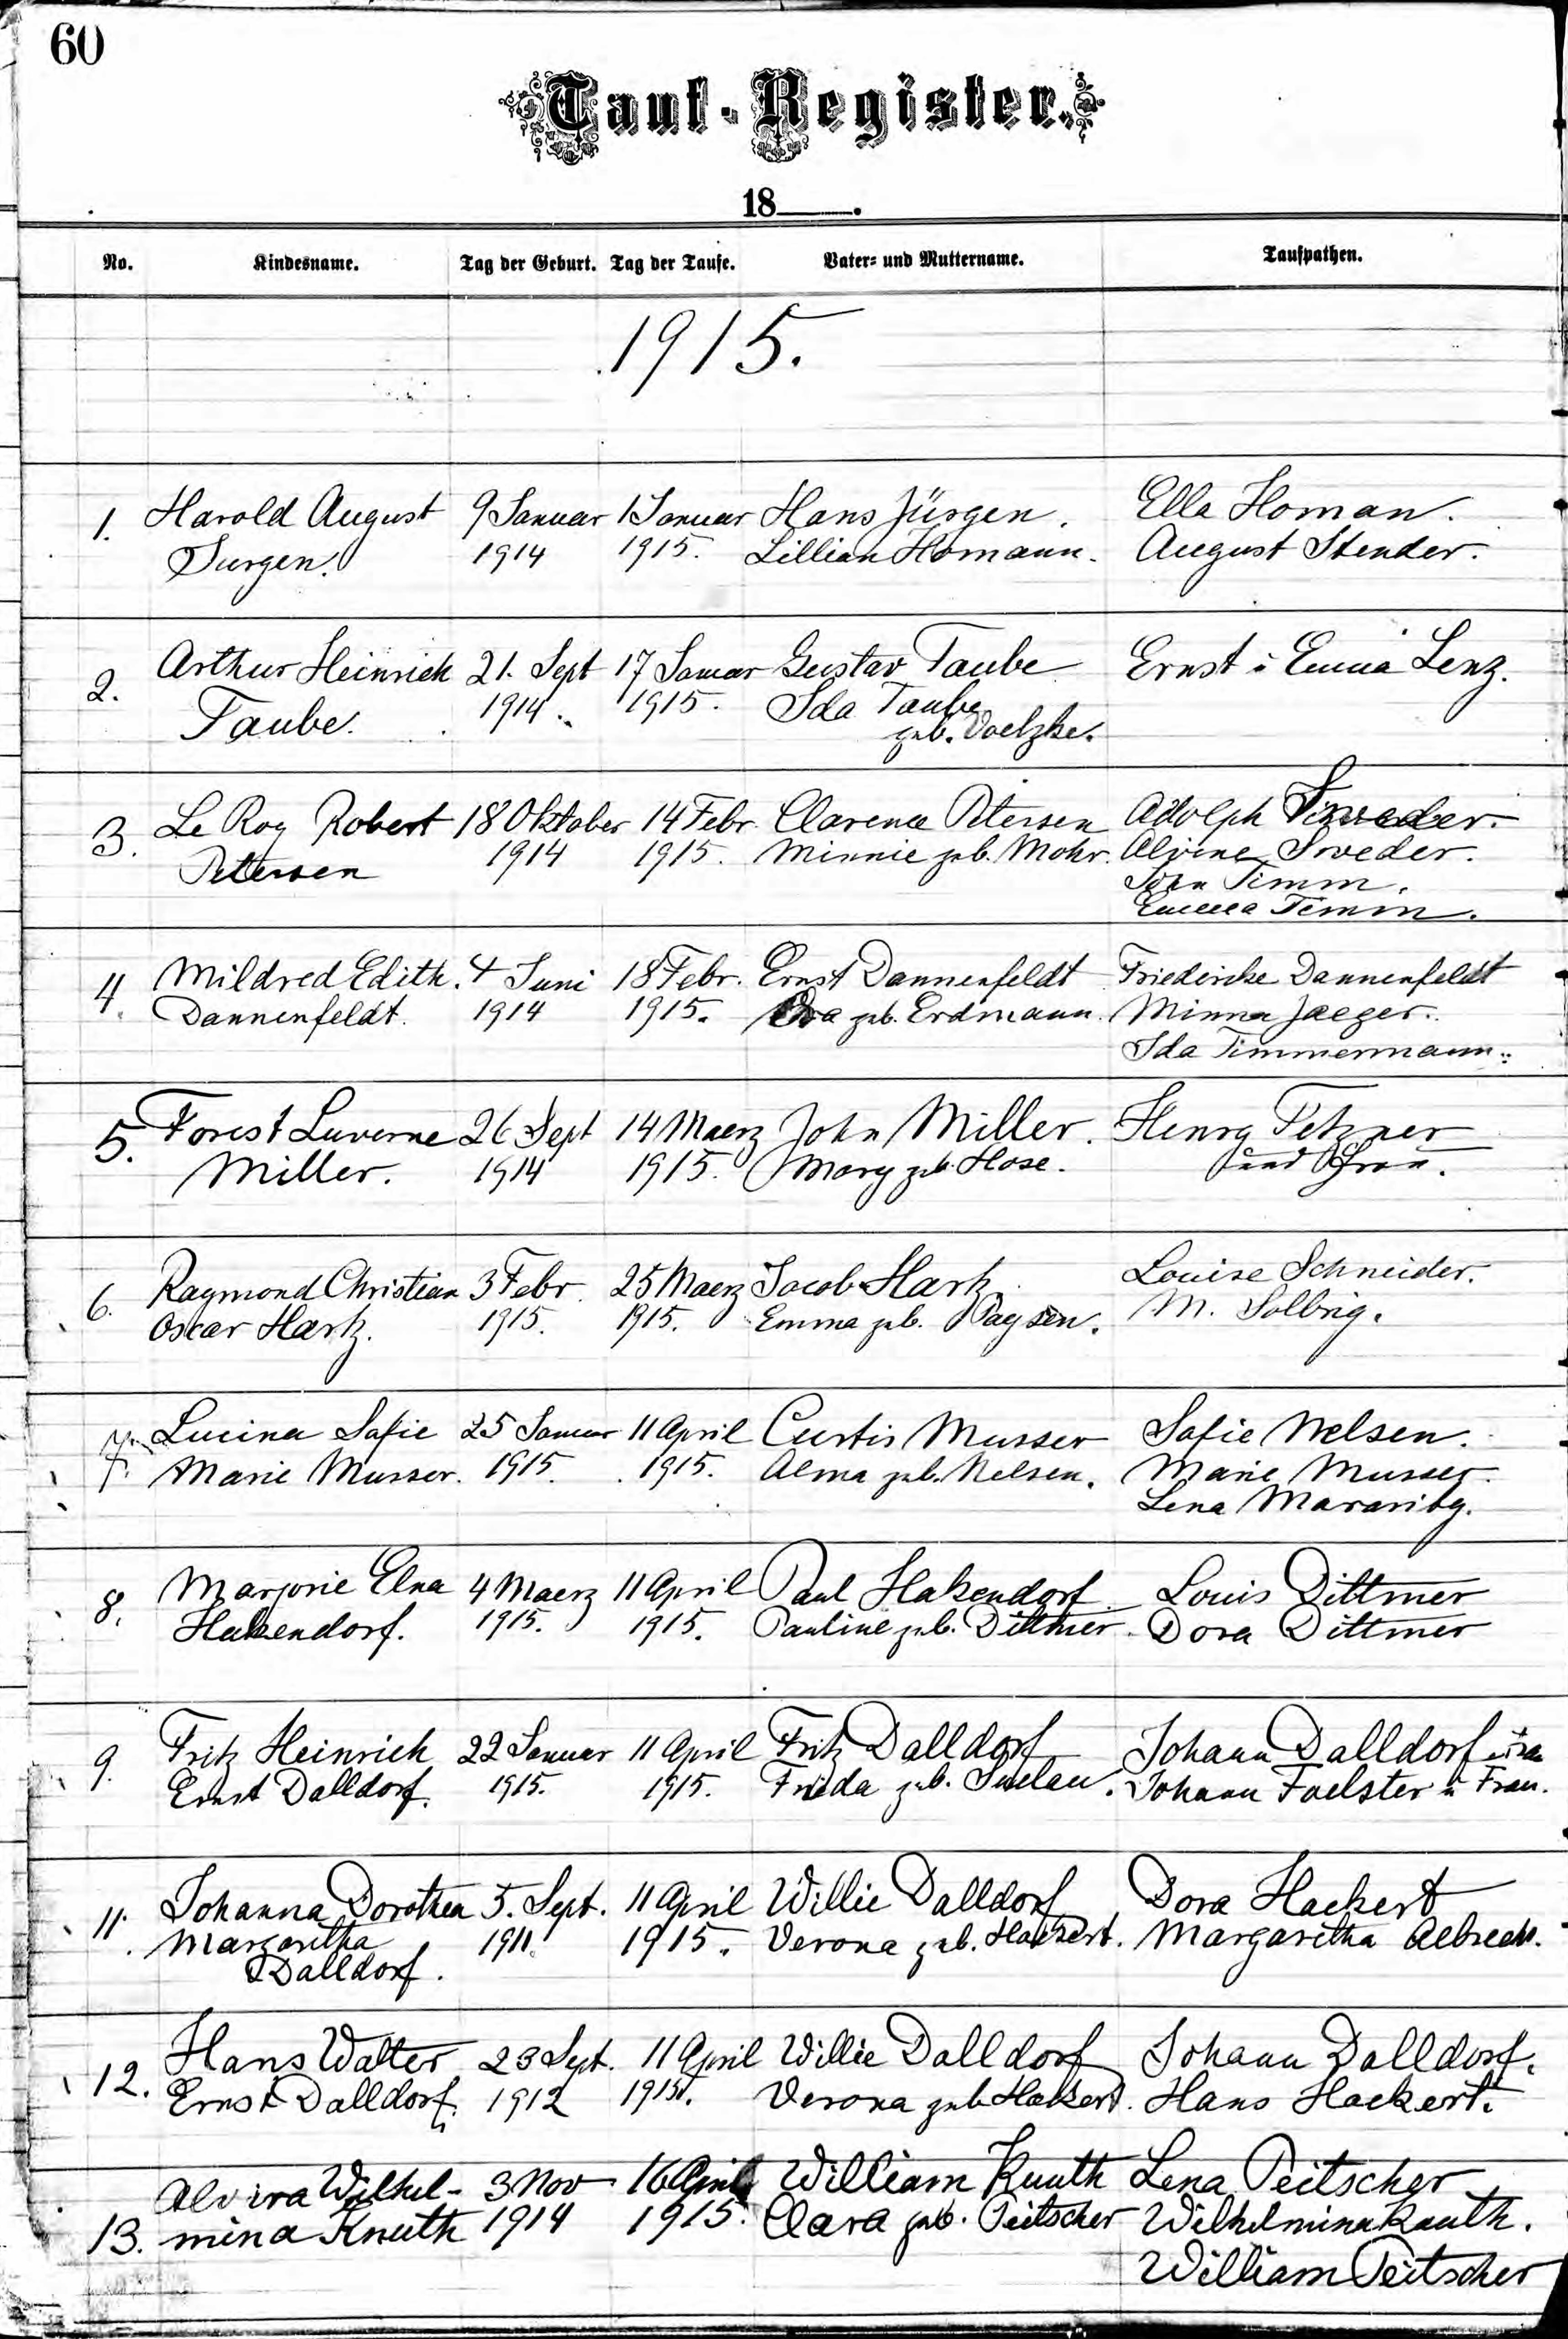 60
Tauf-Register.
18___.
No. Kindesname. Tag der Geburt. Tag der Taufe. Vater- und Muttername. Taufpathen.
1915.
1. Harold August 9 Januar 1 Januar Hans Jürgen. Ella Homan.
Jurgen. 1914 1915. Lillian Homann. August Stender.
2. Arthur Heinrich 21. Sept 17 Januar Gustav Taube Ernst u Emma Lenz.
Taube. 1914. 1915. Ida Taube
geb. Voelzke.
3. Le Roy Robert 18 Oktober 14 Febr. Clarence Petersen Adolph
Petersen 1914 1915. Minnie geb. Mohr. Alvine Sweder.
John Timm.
Emma Timm.
4. Mildred Edith. 4 Juni 18 Febr. Ernst Dannenfeldt Friedericke Dannenfeldt
Dannenfeldt. 1914 1915. Eva geb. Erdmann. Minna Jaeger.
Ida Timmermann.
5. Forest Luverne 26 Sept 14 Maerz John Miller. Henry Petzner
Miller. 1914 1915. Mary geb. Hose. und Frau.
6. Raymond Christian 3 Febr. 25 Maerz Jacob Hartz Louise Schneider.
Oscar Hartz. 1915. 1915. Emma geb. Paysen. M. Solbrig.
7. Lucina Safie 25 Januar 11 April Curtis Musser Safie Nelsen.
Marie Musser. 1915. 1915. Alma geb. Nelsen. Marie Musser.
Lena
8. Marjorie Elna 4 Maerz 11 April Paul Hakendorf. Louis Dittmer
Hakendorf. 1915. 1915. Pauline geb. Dittmer. Dora Dittmer
9. Fritz Heinrich 22 Januar 11 April Fritz Dalldorf Johann Dalldorf u Frau
Ernst Dalldorf. 1915. 1915. Frieda geb. Suelau. Johann Foelster u Frau.
11. Johanna Dorothea 5. Sept. 11 April Willie Dalldorf Dora Hackert
Margaretha 1911. 1915. Verona geb. Hackert. Margaretha Albrecht.
Dalldorf.
12. Hans Walter 23 Sept. 11 April Willie Dalldorf Johann Dalldorf.
Ernst Dalldorf. 1912 1915. Verona geb. Hackert. Hans Hackert.
Alvira Wilhel- 3 Nov 16 April William Knuth Lena Peitscher
13. mina Knuth 1914 1915. Clara geb. Peitscher Wilhelmina Knuth.
William Peitscher